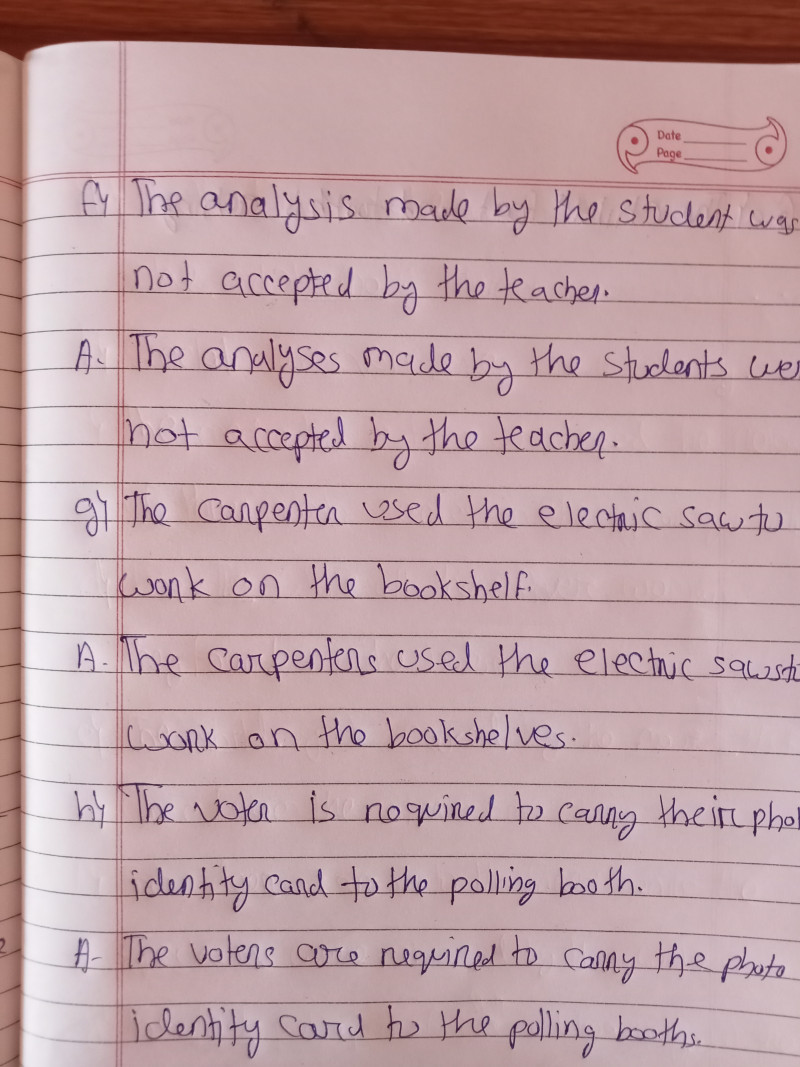 Date
Page
f) The analysis made by the student was
not accepted by the teacher.
A. The analyses made by the students wer
not accepted by the teacher.
g) The carpenter used the electric saw to
work on the bookshelf.
A. The carpenters used the electric saws t
work on the bookshelves.
h) The voter is required to carry their phot
identity card to the polling booth.
A- The voters are required to carry the photo
identity card to the polling booths.